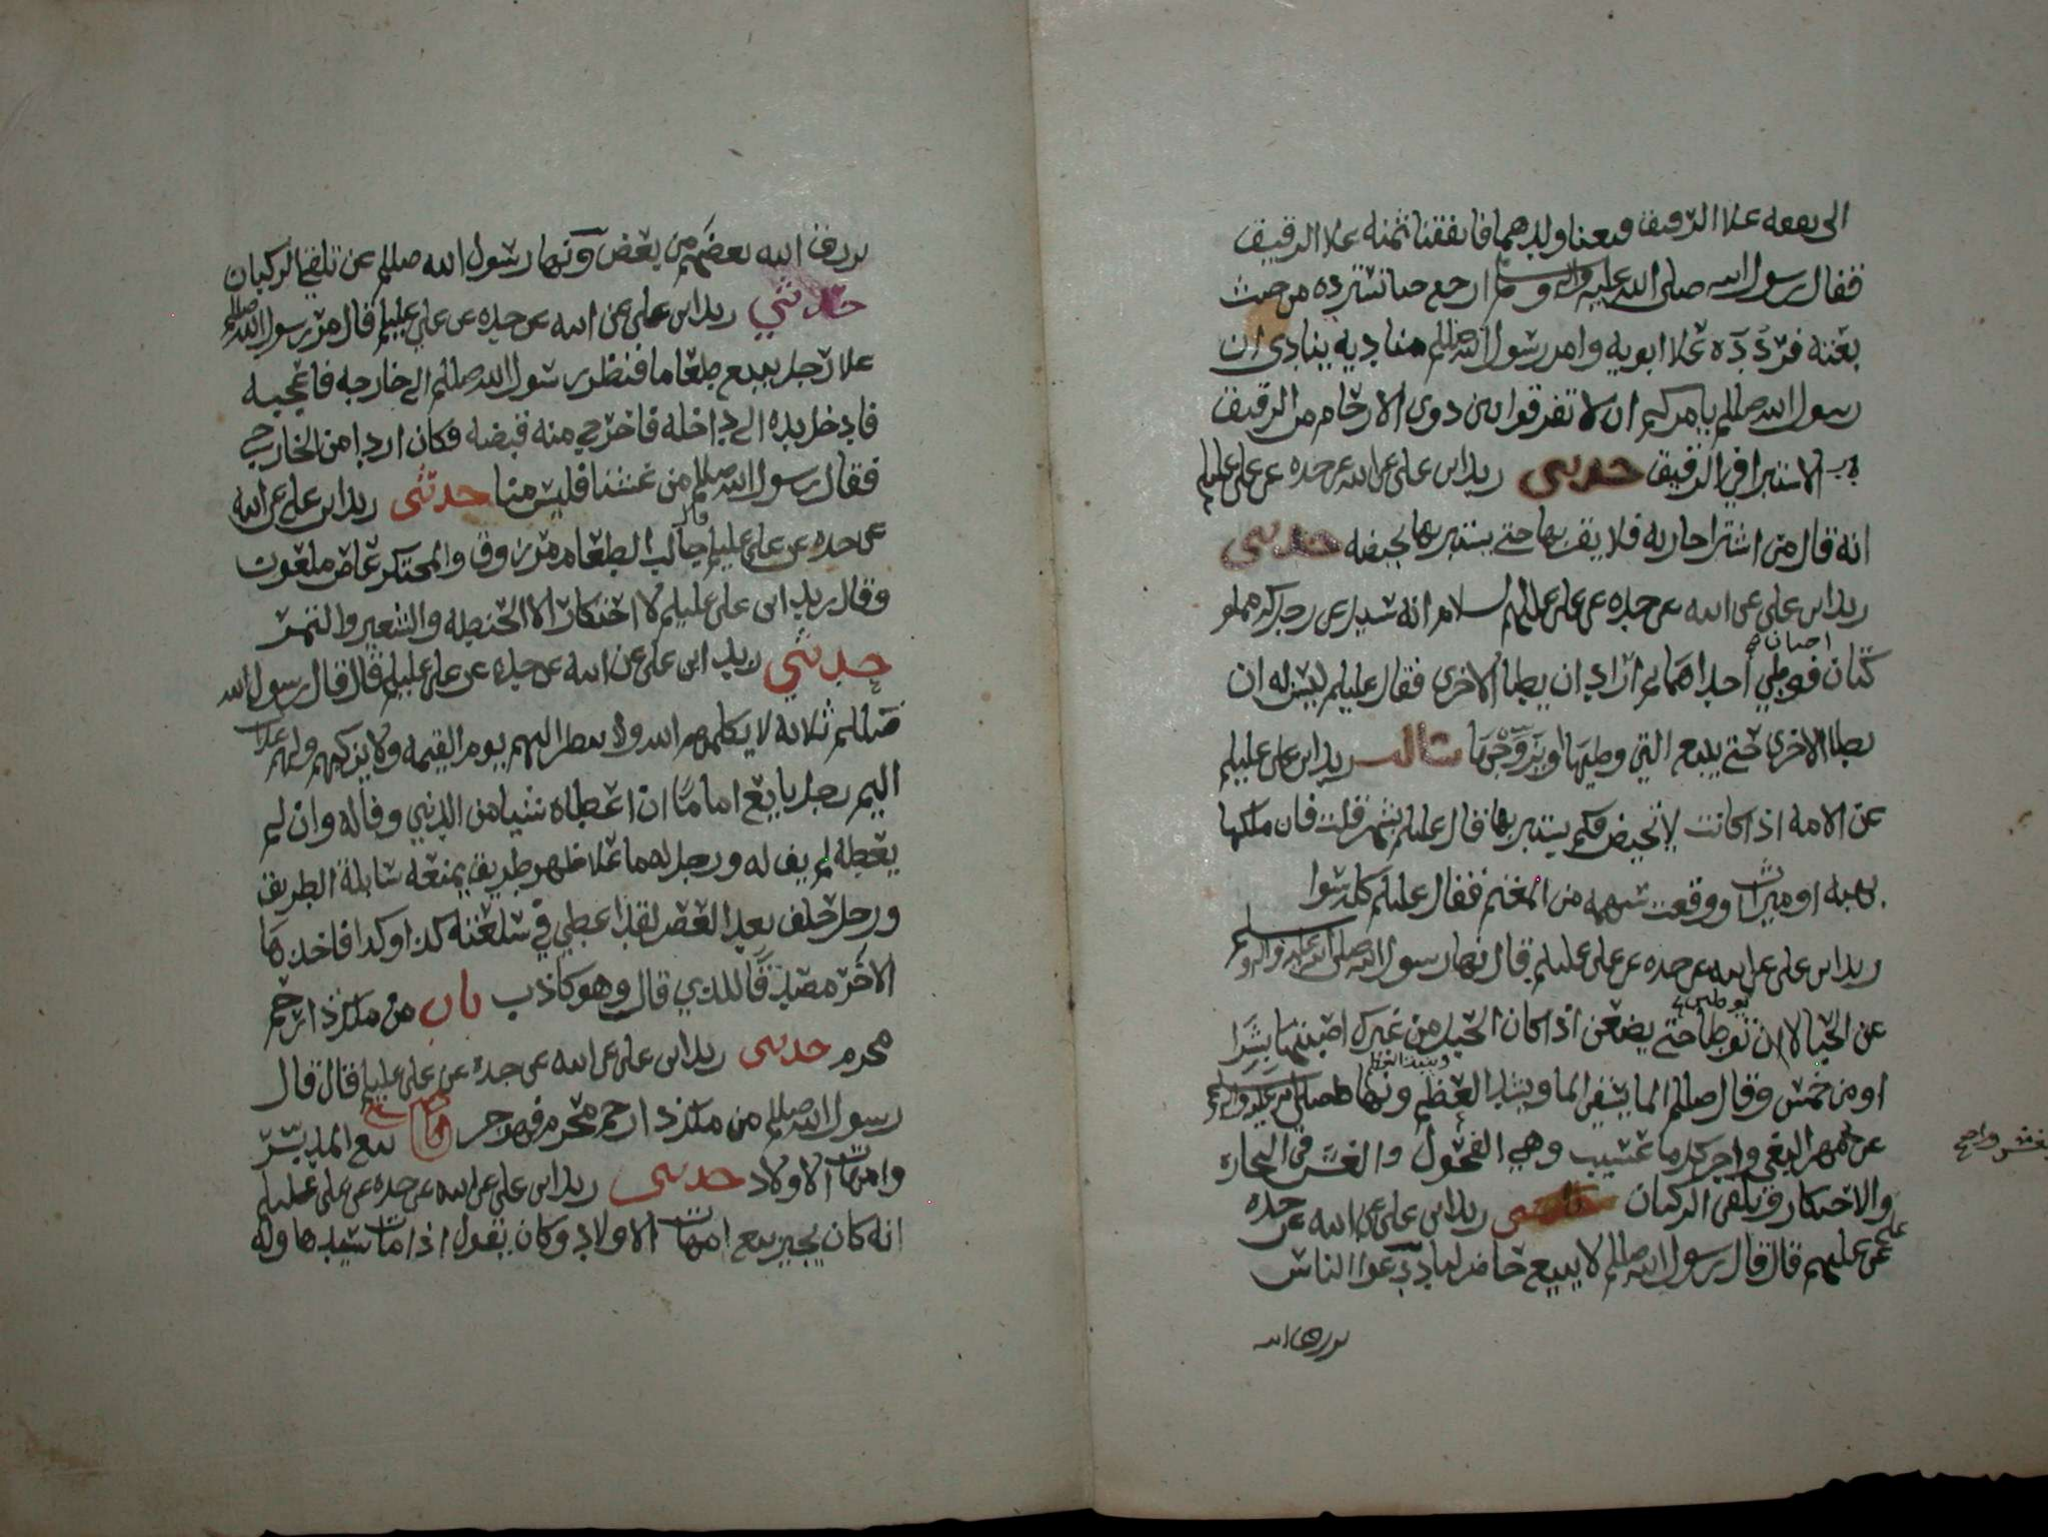 الى نفقه علا الرقيق فبعنا ولدهما فانفقنا ثمنه علا الرقيق
فقال رسول الله صلى الله عليه واله وسلم ارجع حتا تسترده من حيث
بعته فردده علا ابويه وامر رسول الله صللم مناديه ينادي ان
رسول الله صللم يامركم ان لا تفرقوا بين ذوي الارحام من الرقيق
الاستبرا في الرقيق حدثني زيد ابن علي عن ابيه عن جده عن علي عليلم
انه قال من اشترا جاريه فلا يقربها حتى يستبريها بحيضه حدثني
زيد ابن علي عن ابيه عن جده عن علي عليهم السلام انه سئل عن رجل له مملو
كتان اختان فوطي احداهما ثم اراد ان يطا الاخرى فقال عليلم ليس له ان
يطا الاخرى حتى يبيع التي وطيها او يزوجها سالت زيد ابن علي عليلم
عن الامه اذا كانت لا تحيض فكم يستبريها قال عليلم بشهر قلت فان ملكها
بهبه او ميراث او وقعت سهمه من المغنم فقال عليلم كله سوا
زيد ابن علي عن ابيه عن جده عن علي عليلم قال نها رسول الله صلى الله عليه واله وسلم
عن الحبالا ان توطا حتى يضعن اذا كان الحبل من غيرك اصبتها شرا
او من خمس وقال صللم الما يسقي الما ويشد العظم ونها صلى الله عليه واله وسلم
عن مهر البغي واجر كل ما عسيب وهي الفحول والغش في التجاره
والاحتكار وتلقي الركبان حدثني زيد ابن علي عن ابيه عن جده
عن علي عليهم قال قال رسول الله صللم لا يبيع حاضر لباد دعوا الناس
يرزق الله
يرزق الله بعضهم من بعض ونها رسول الله صللم عن تلقي الركبان
حدثني زيد ابن علي عن ابيه عن جده عن علي عليلم قال مر رسول الله صللم
علا رجل يبيع طعاما فنظر رسول الله صللم الى خارجه فاعجبه
فادخل يده الى داخله فاخرج منه قبضه فكان اردا من الخارج
فقال رسول الله صللم من غشنا فليس منا حدثني زيد ابن علي عن ابيه
عن جده عن علي عليلم قال جالب الطعام مرزوق والمحتكر عاص ملعون
وقال زيد ابن علي عليلم لا احتكار الا الحنطه والشعير والتمر
حدثني زيد ابن علي عن ابيه عن جده عن علي عليلم قال قال رسول الله
صللم ثلاثه لا يكلمهم الله ولا ينظر اليهم يوم القيمه ولا يزكيهم ولهم عذاب
اليم رجل بايع اماما ان اعطاه شيا من الدنيي وفا له وان لم
يعطه لم يف له ورجل له ما علا ظهر طريق يمنعه سابلة الطريق
ورجل حلف بعد العصر لقد اعطي في سلعته كذا وكذا فاخذها
الاخر مصدقا للذي قال وهو كاذب باب من ملك ذا رحم
محرم حدثني زيد ابن علي عن ابيه عن جده عن علي عليلم قال قال
رسول الله صللم من ملك ذا رحم محرم فهو حر باب بيع المدبر
وامهات الاولاد حدثني زيد ابن علي عن ابيه عن جده عن علي عليلم
انه كان يجيز بيع امهات الاولاد وكان يقول اذا مات سيدها وله